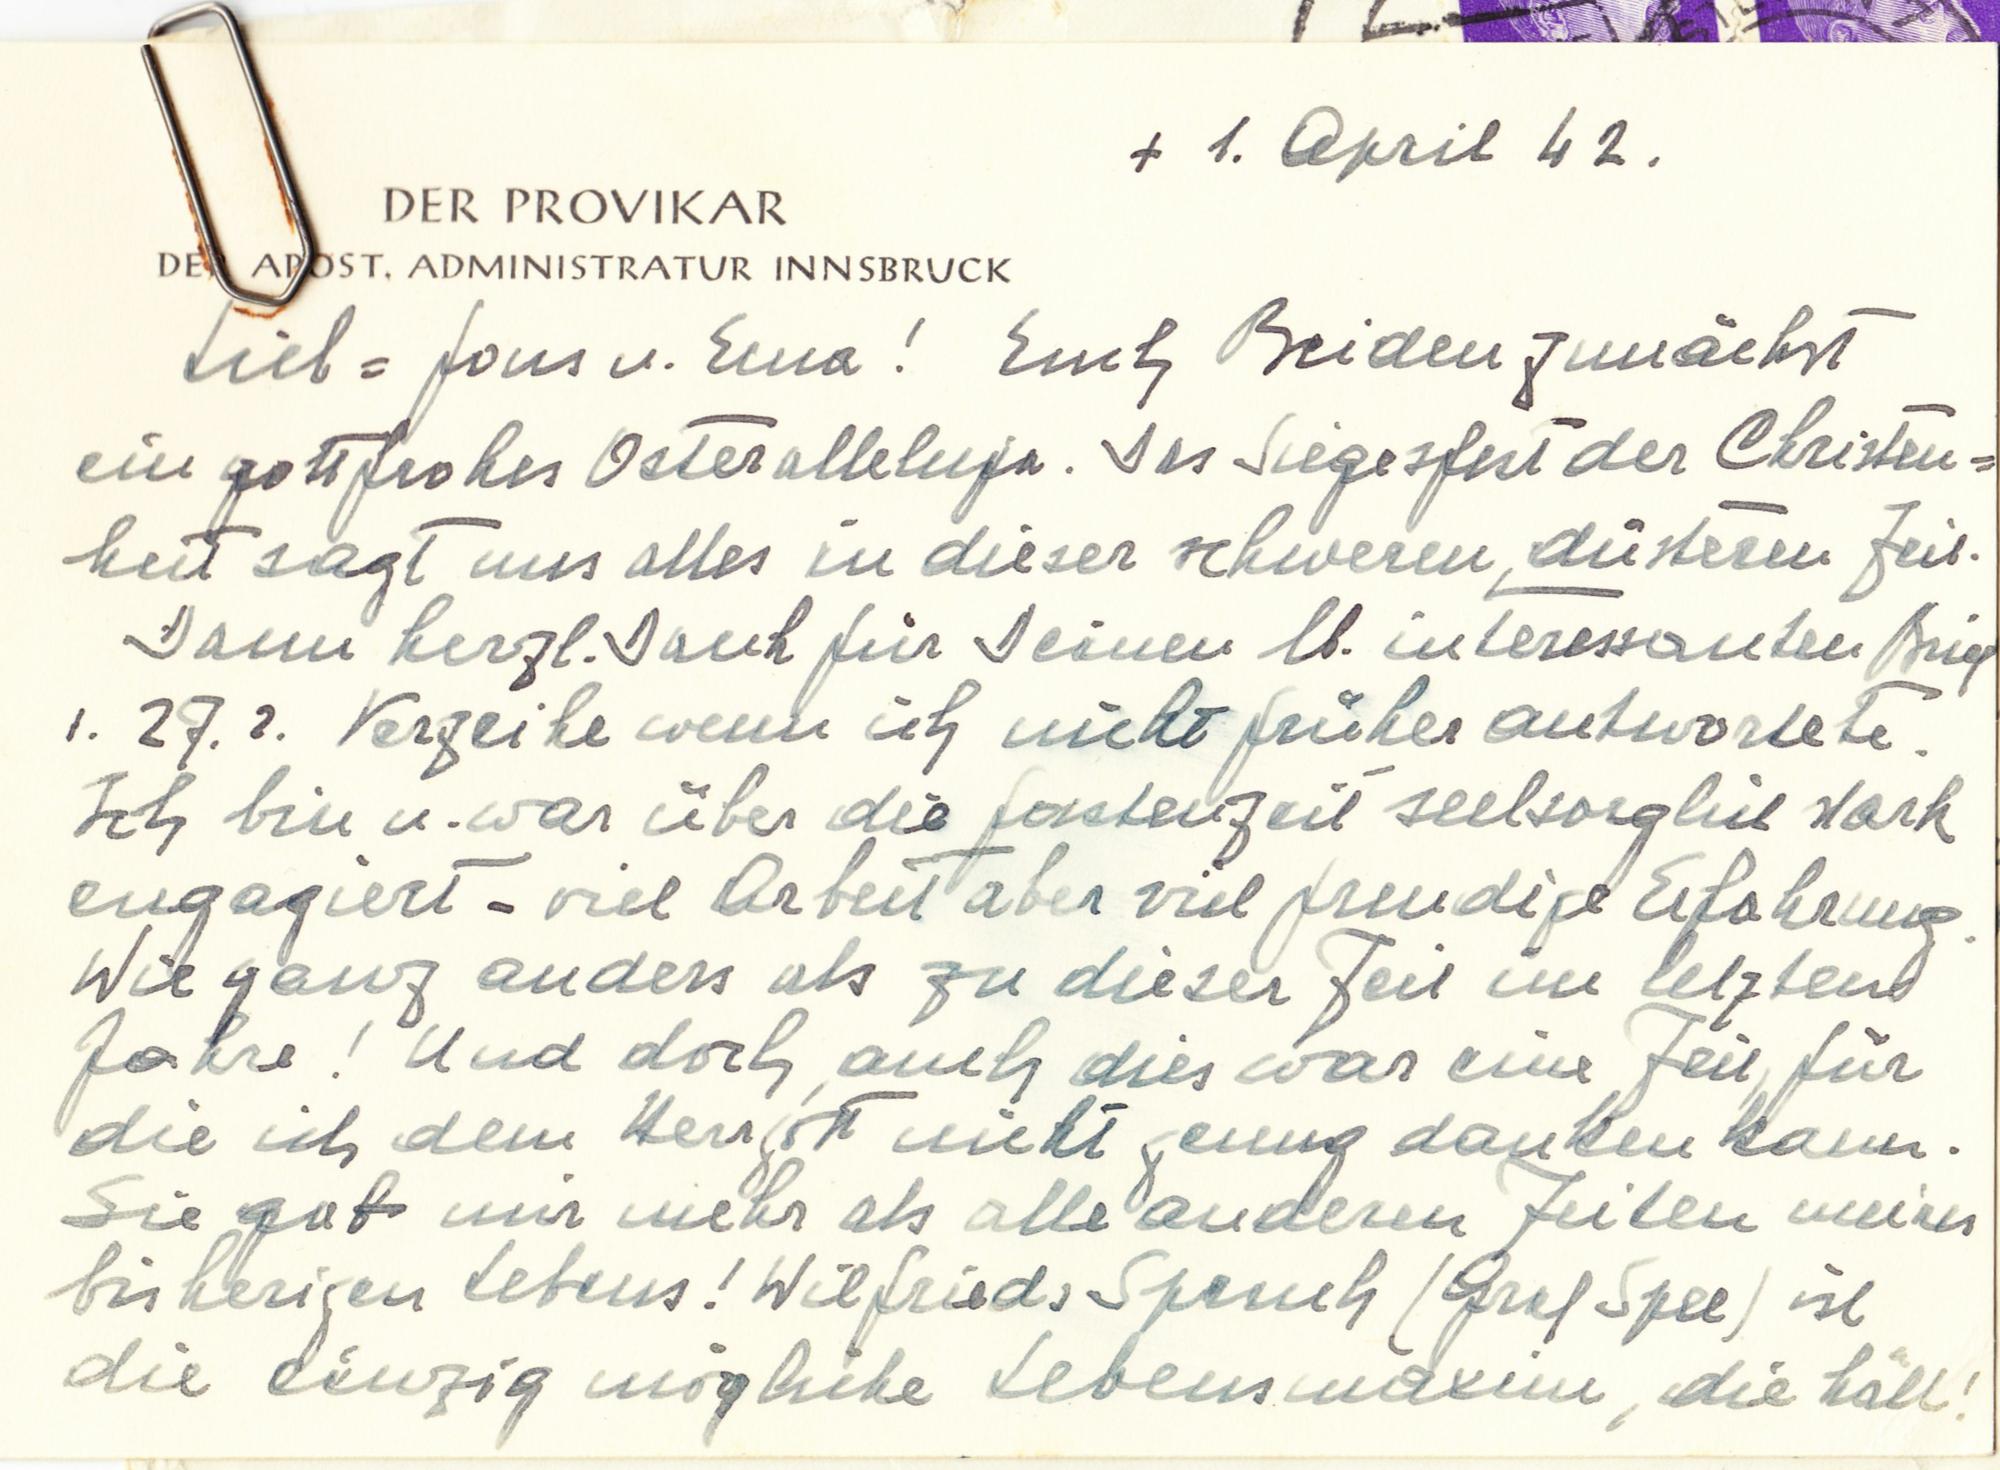 + 1. April 42.
DER PROVIKAR
DER APOST. ADMINISTRATUR INNSBRUCK
Lieb= Fons u. Erna! Euch Beiden zunächst
ein gottfrohes Osteralleluja. Das Siegesfest der Christen=
heit sagt uns alles in dieser schweren, düsteren Zeit.
Dann herzl. Dank für Deinen lb. interessanten Brief
v. 27. 2. Verzeihe wenn ich nicht früher antwortete.
Ich bin u. war über die Fastenzeit seelsorglich stark
engagiert - viel Arbeit aber viel freudige Erfahrung.
Wie ganz anders als zu dieser Zeit im letzten
Jahre! Und doch, auch dies war eine Zeit, für
die ich dem Herrgott nicht genug danken kann.
Sie gab mir mehr als alle anderen Zeiten meines
bisherigen Lebens! Wilfrieds Spruch (Graf Spee) ist
die einzig mögliche Lebensmaxime, die hält!